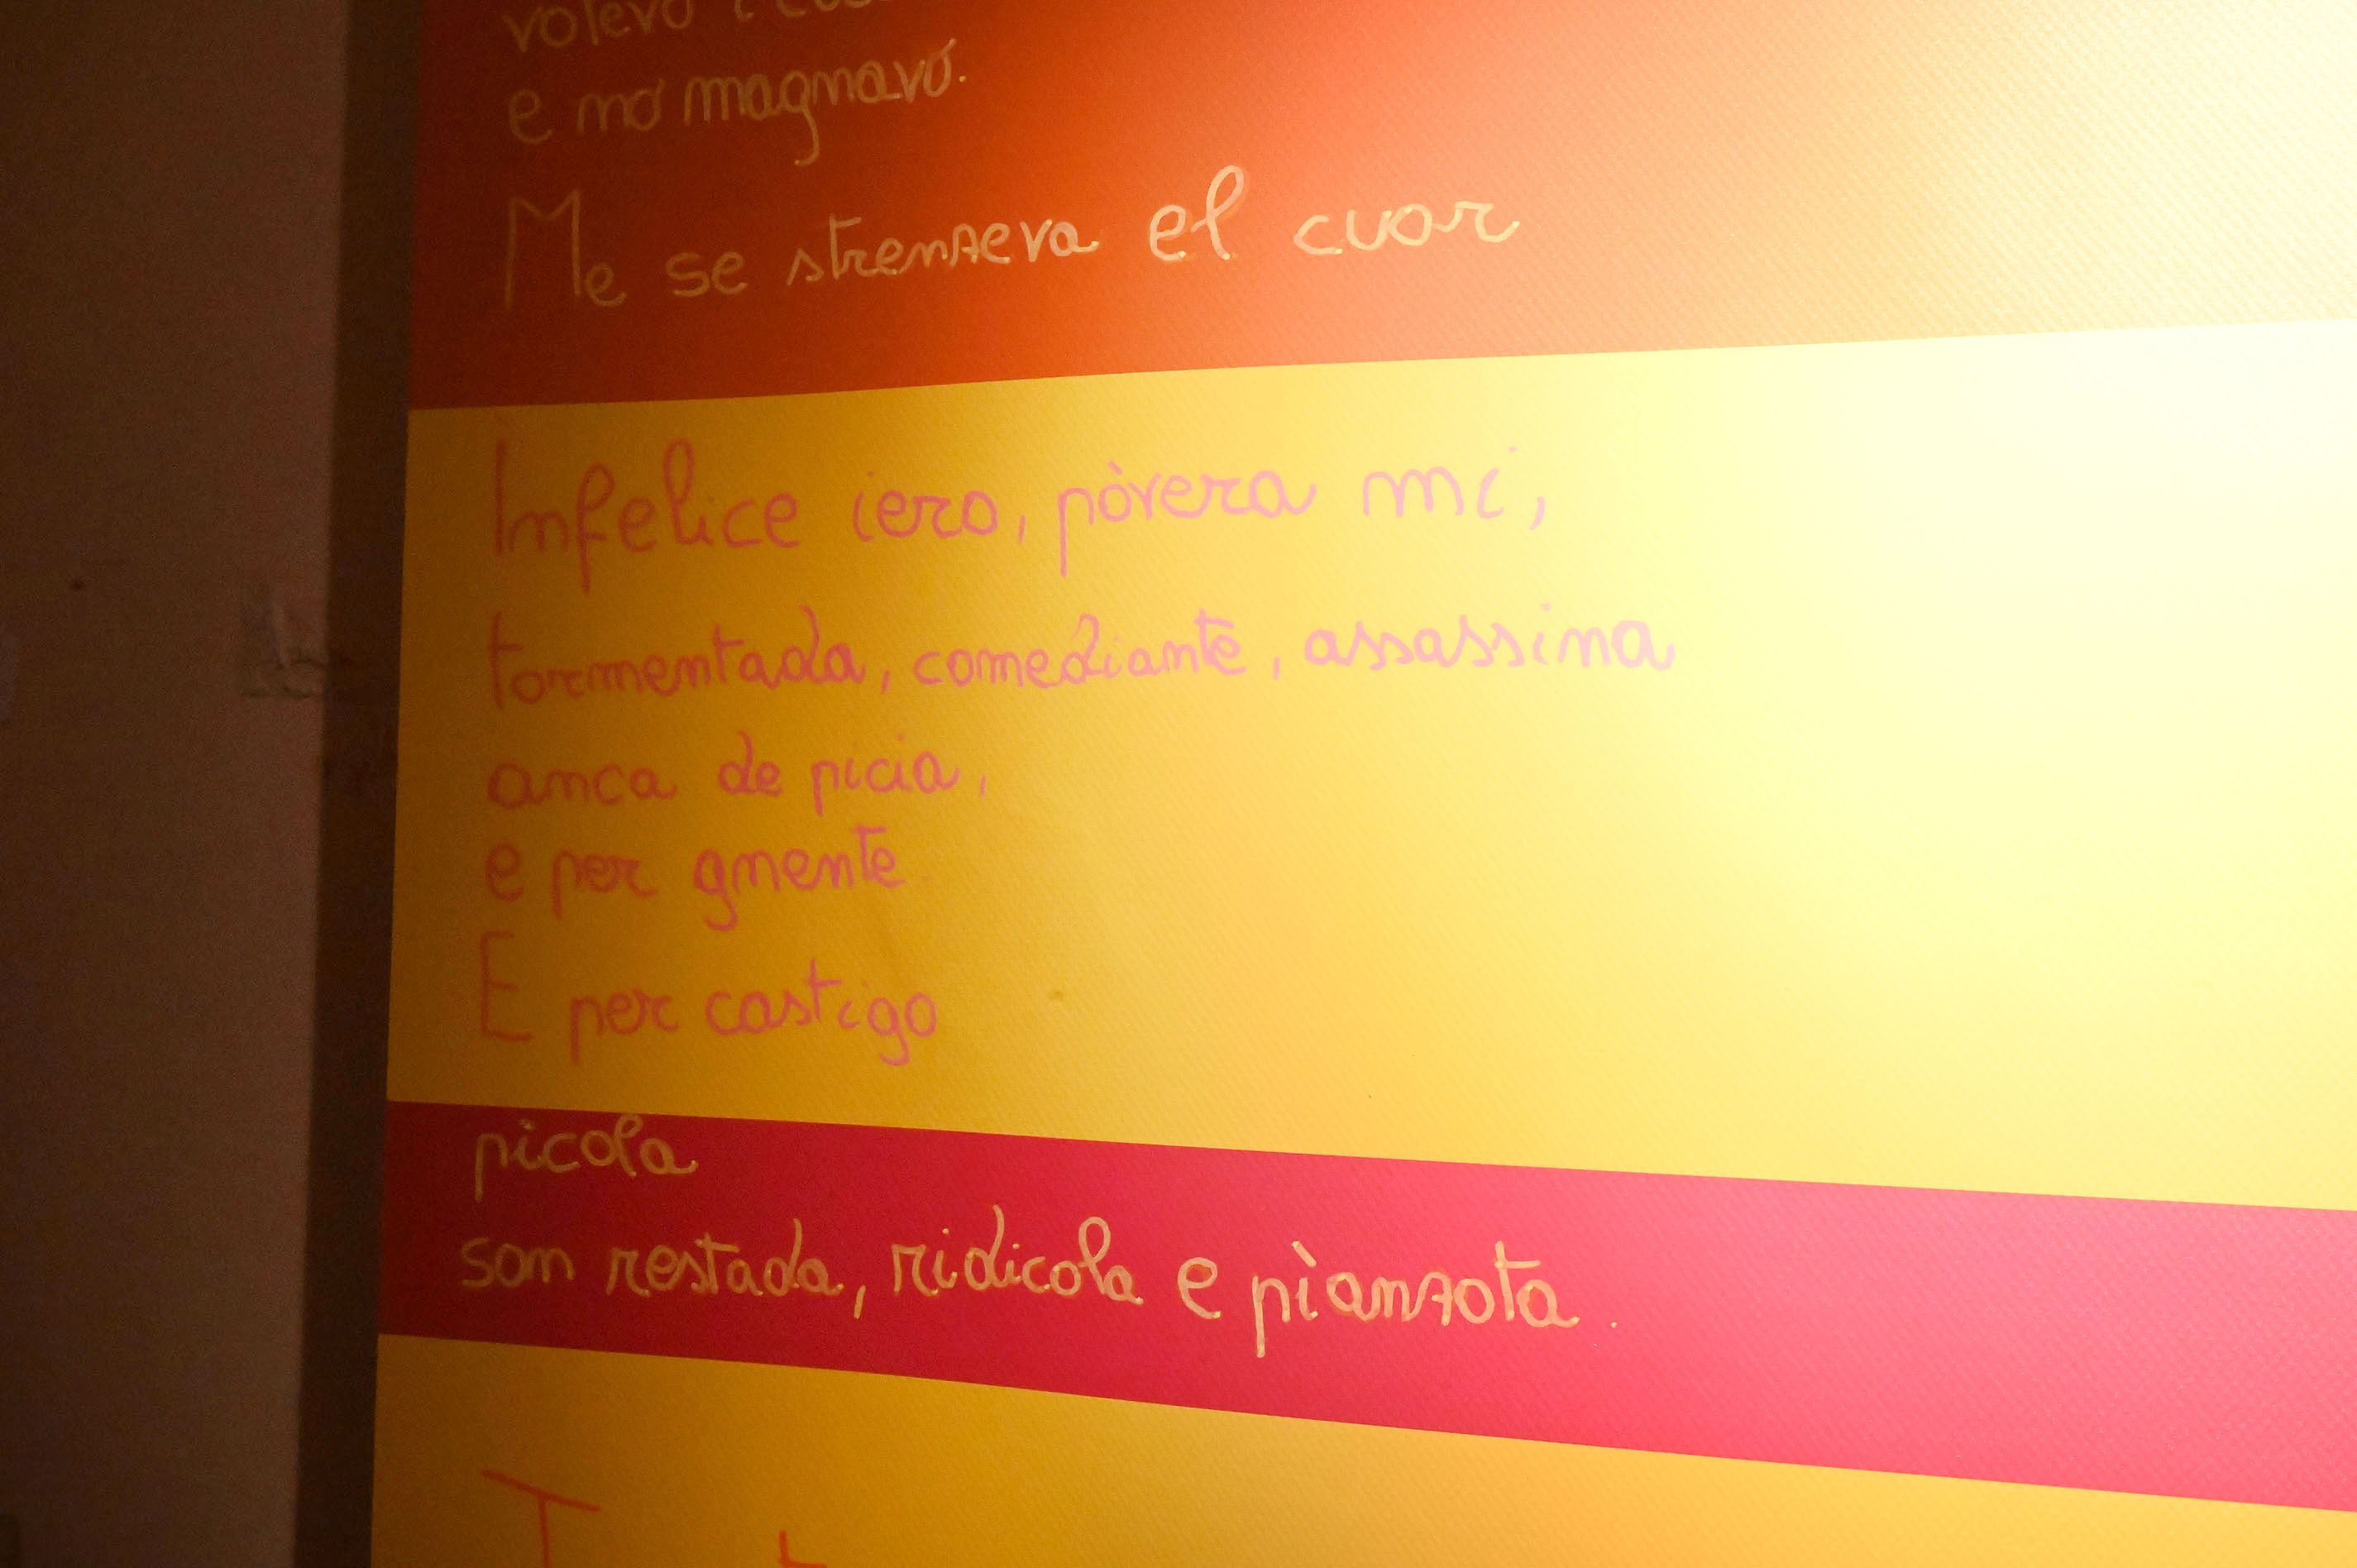 volevo
e no magnavo.
Me se strenzeva el cuor
Infelice iero, pòvera mi,
tormentada, comediante, assassina
anca de picia,
e per gnente.
E per castigo
picola
son restada, ridicola e pianzota.